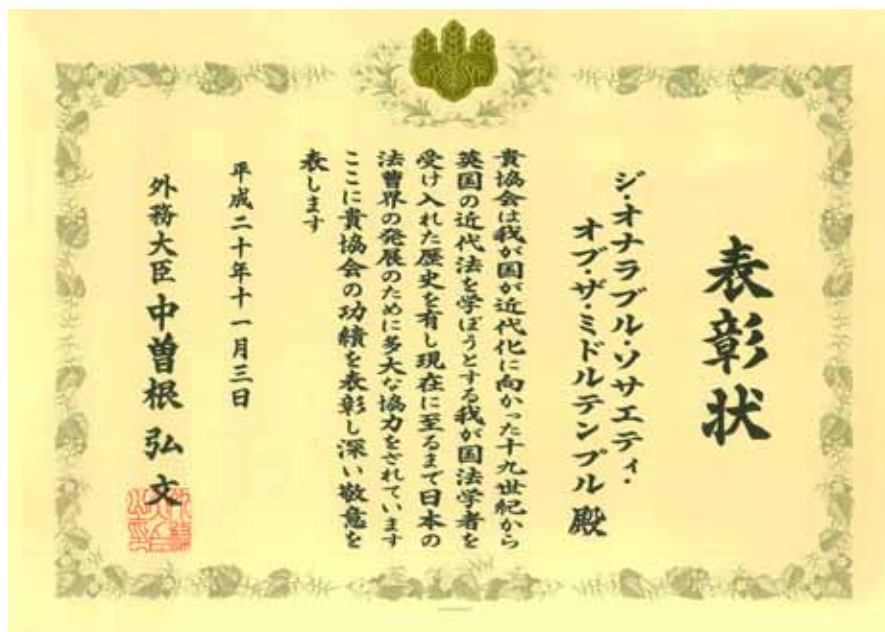 表彰状
ジ・オナラブル・ソサエティ・
オブ・ザ・ミドルテンプル 殿
貴協会は我が国が近代化に向かった十九世紀から
英国の近代法を学ぼうとする我が国法学者を
受け入れた歴史を有し現在に至るまで日本の
法曹界の発展のために多大な協力をされています
ここに貴協会の功績を表彰し深い敬意を
表します
平成二十年十一月三日
外務大臣 中曽根 弘文